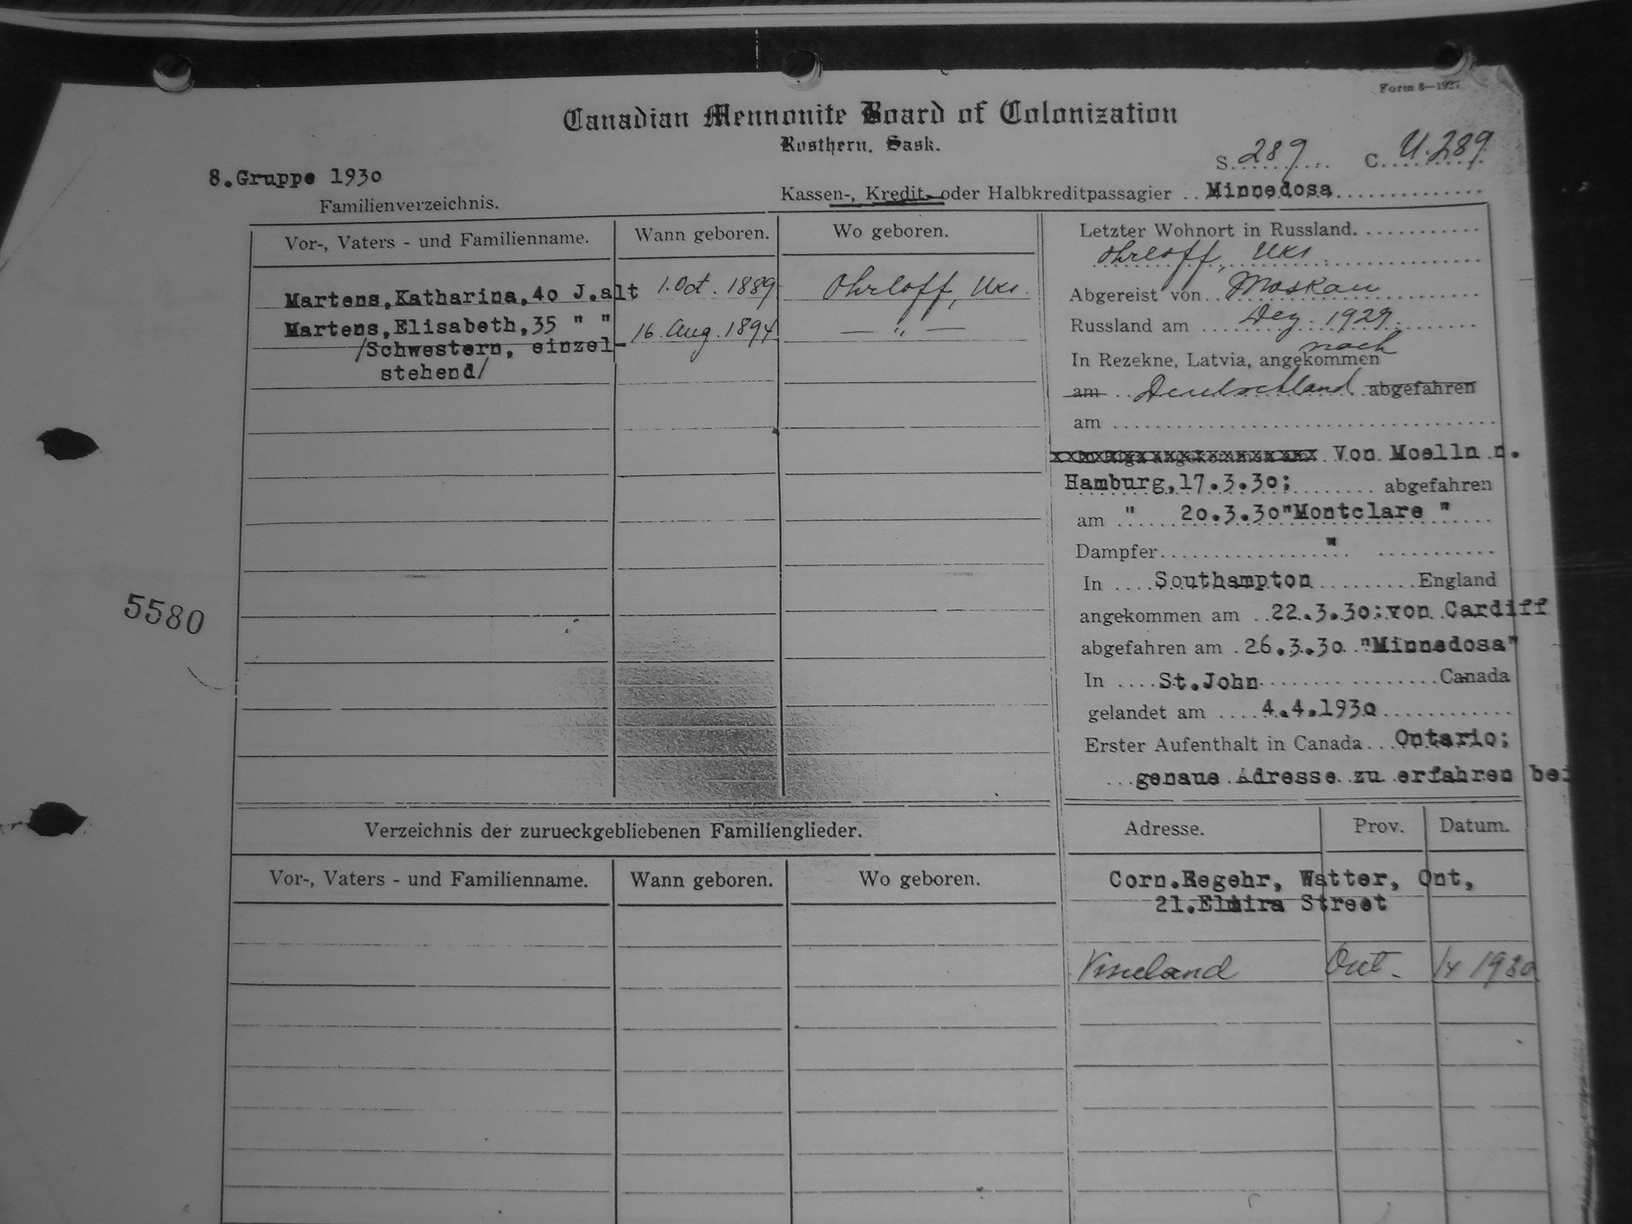 Form 8—1927
Canadian Mennonite Board of Colonization
Rosthern, Sask.
S. 289 C. U.289
8.Gruppe 1930
Kassen-, Kredit- oder Halbkreditpassagier Minnedosa
Familienverzeichnis.
Vor-, Vaters - und Familienname. Wann geboren. Wo geboren.
Martens,Katharina,40 J.alt 1. Oct. 1889 Ohrloff, Ukr.
Martens,Elisabeth,35 " " 16. Aug. 1894 — " —
/Schwestern, einzel-
stehend/
Letzter Wohnort in Russland.
Ohrloff, Ukr.
Abgereist von Moskau
Russland am Dez. 1929.
nach
In Rezekne, Latvia, angekommen
am Deutschland abgefahren
am
Von Moelln n.
Hamburg,17.3.30; abgefahren
am " 20.3.30"Montclare "
Dampfer "
In Southampton England
angekommen am 22.3.30;von Cardiff
abgefahren am 26.3.30 "Minnedosa"
In St.John Canada
gelandet am 4.4.1930
Erster Aufenthalt in Canada Ontario;
genaue Adresse zu erfahren bei
5580
Verzeichnis der zurueckgebliebenen Familienglieder.
Vor-, Vaters - und Familienname. Wann geboren. Wo geboren.
Adresse. Prov. Datum.
Corn.Regehr, Watter, Ont,
21.Elmira Street
Vineland Ont. 1930